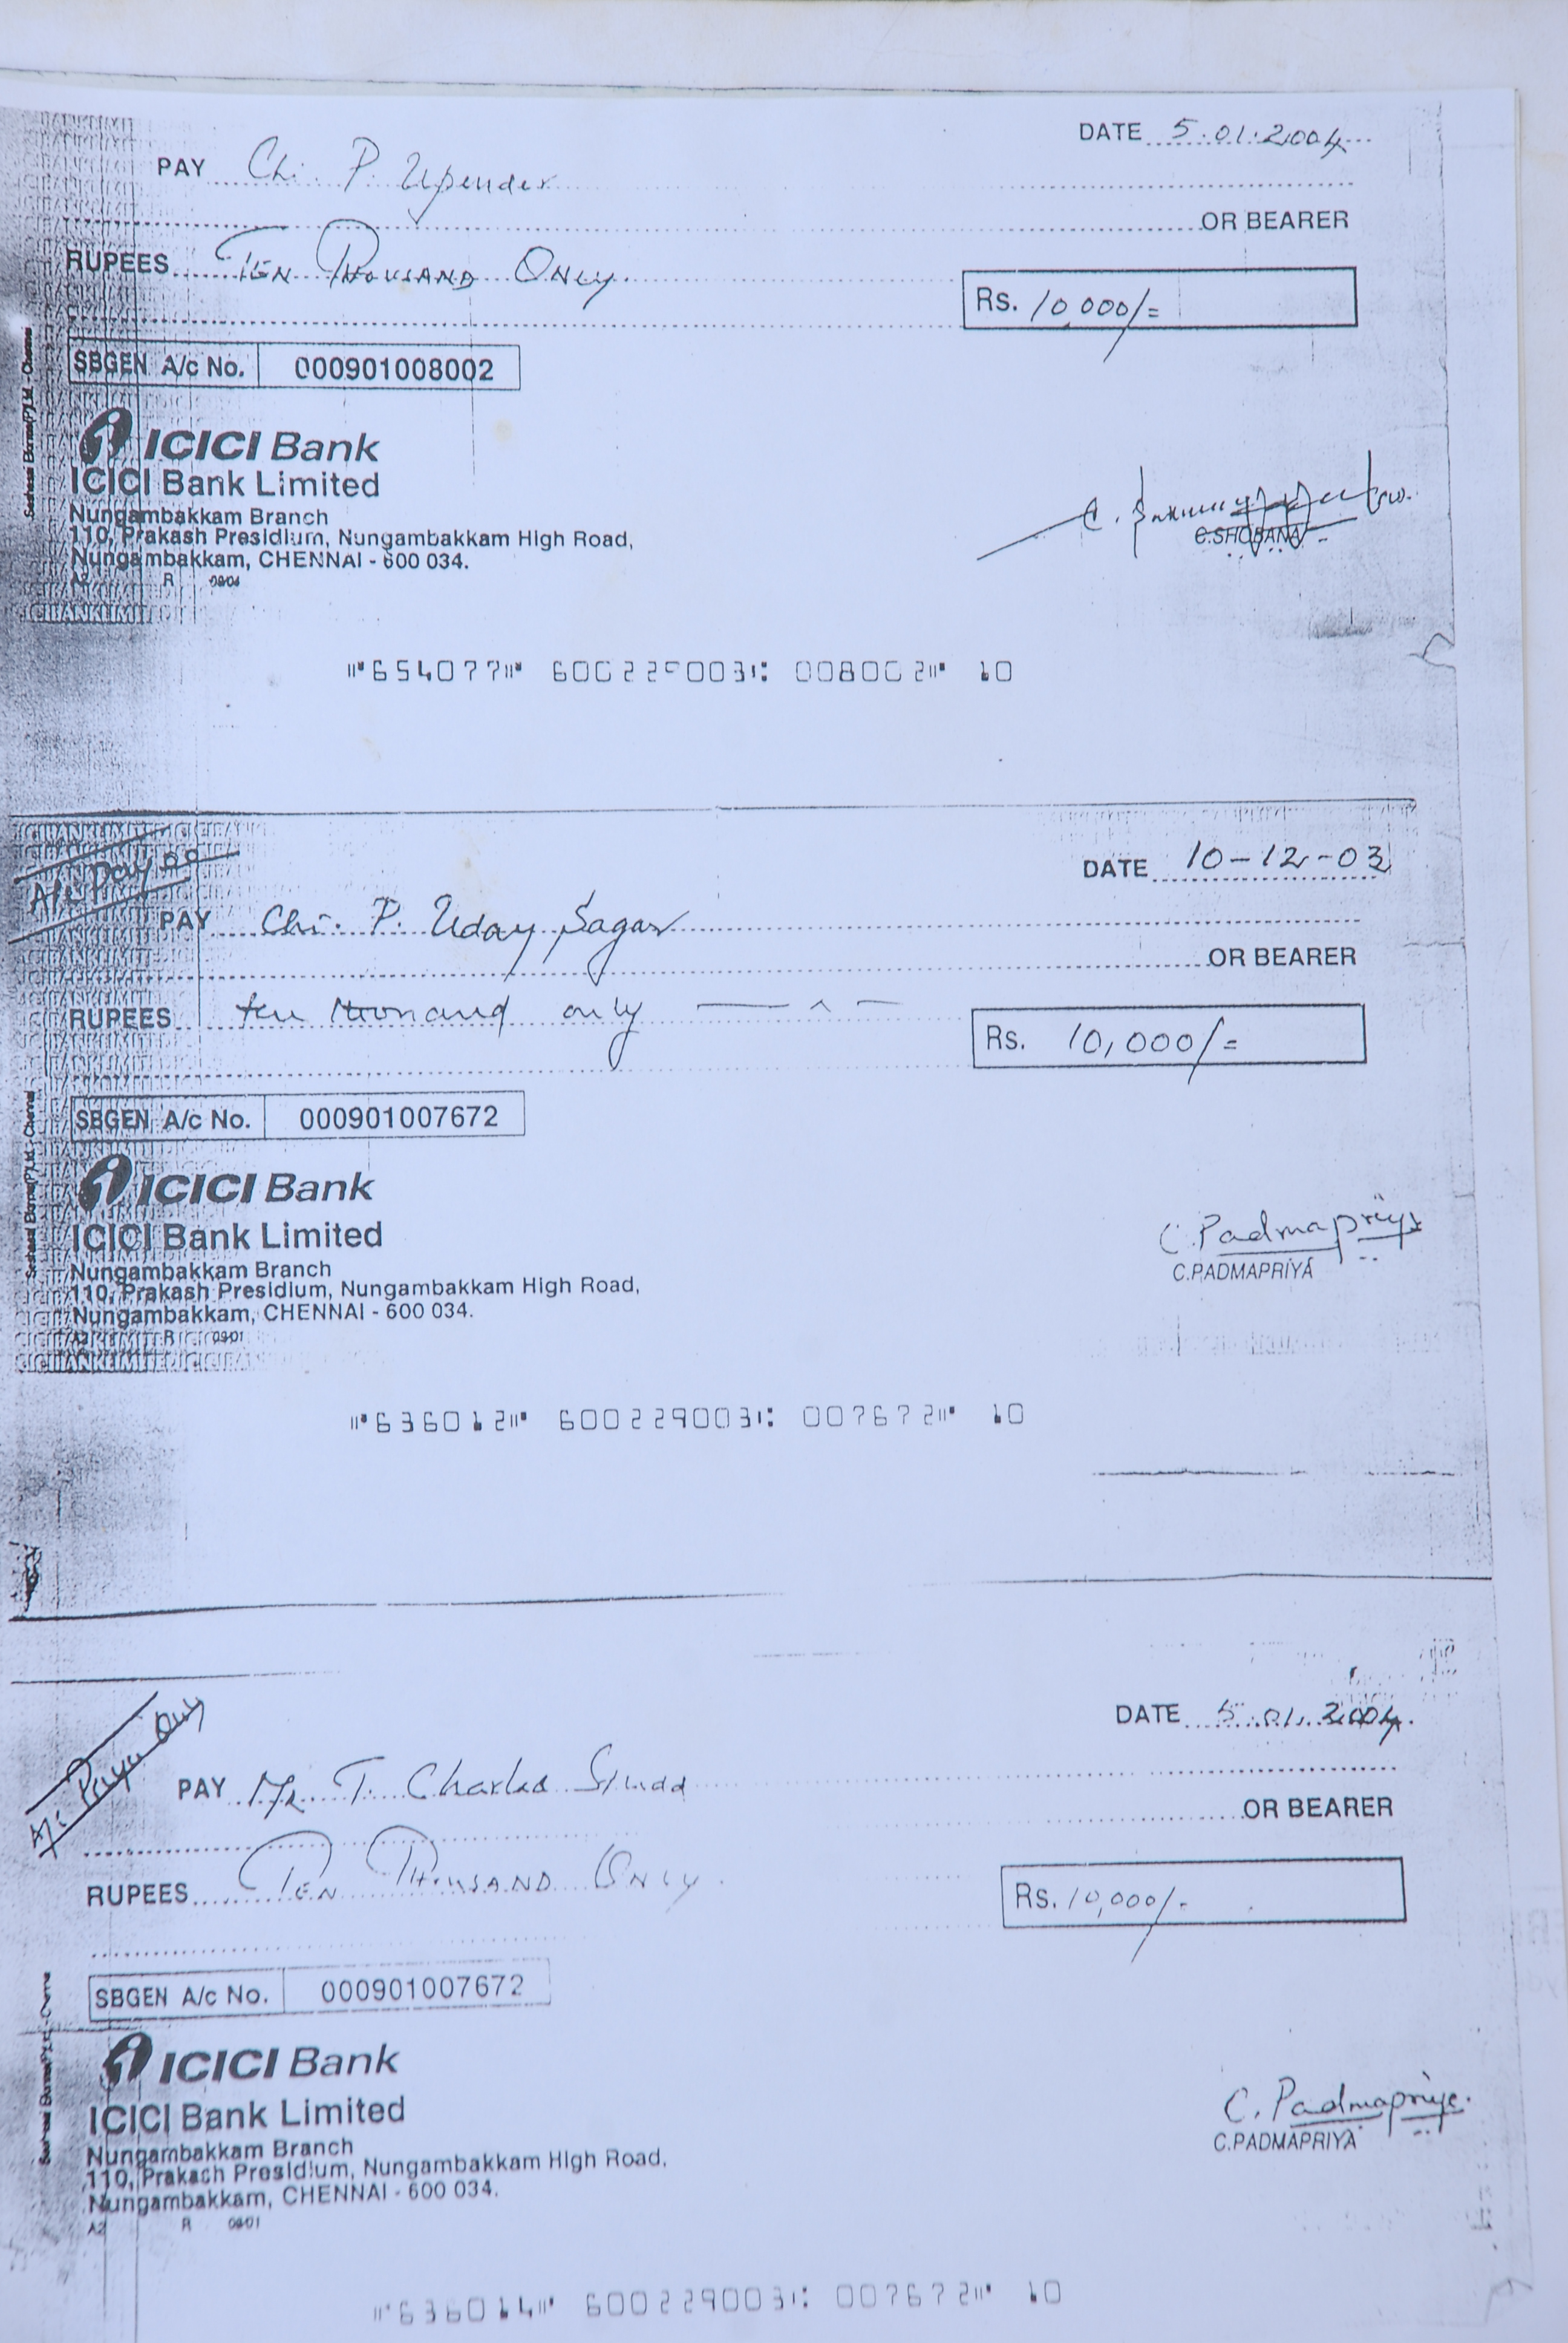 DATE 5.01.2004
PAY Chi. P. Upender
OR BEARER
RUPEES TEN THOUSAND ONLY.
Rs. 10,000/=
SBGEN A/c No. 000901008002
ICICI Bank
ICICI Bank Limited
Nungambakkam Branch
110, Prakash Presidium, Nungambakkam High Road,
Nungambakkam, CHENNAI - 600 034.
A2 R
C.SHOBANA
654077 008002 10
A/c Payee
DATE 10-12-03
PAY Chi. P. Uday Sagar
OR BEARER
RUPEES ten thousand only
Rs. 10,000/=
SBGEN A/c No. 000901007672
ICICI Bank
ICICI Bank Limited
Nungambakkam Branch
110, Prakash Presidium, Nungambakkam High Road,
Nungambakkam, CHENNAI - 600 034.
R
C. Padmapriya
C.PADMAPRIYA
636012 600229003 007672 10
A/c Payee Only
DATE 5.01.2004.
PAY Mr T. Charles
OR BEARER
RUPEES TEN THOUSAND ONLY.
Rs. 10,000/-
SBGEN A/c No. 000901007672
ICICI Bank
ICICI Bank Limited
Nungambakkam Branch
110, Prakash Presidium, Nungambakkam High Road,
Nungambakkam, CHENNAI - 600 034.
A2 R
C. Padmapriya.
C.PADMAPRIYA
636014 600229003 007672 10